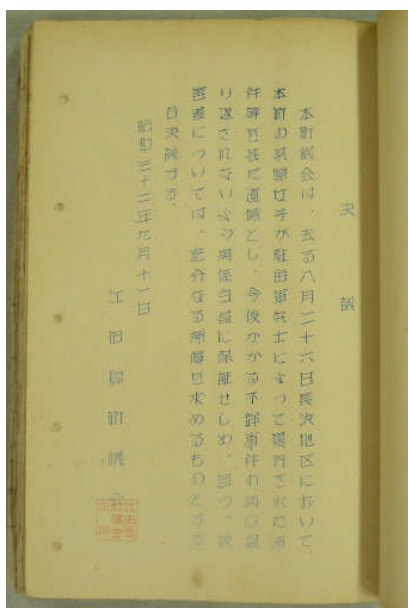 決議
本町議会は、去る八月二十六日地区において
本町の女子が駐留軍兵士によって暴行された事
件を甚だ遺憾とし、今後かかる不祥事件の再び繰
り返されないよう関係当局に保証せしめ、且つ、被
害者については、充分なる補償を求めるものとする
旨決議する。
昭和三十二年九月十一日
江田島町議会